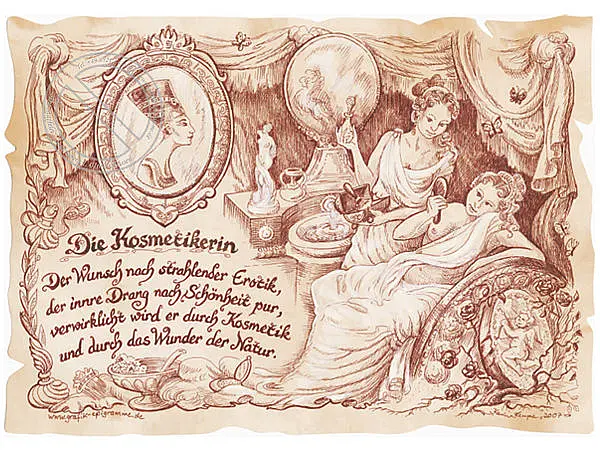 Die Kosmetikerin
Der Wunsch nach strahlender Erotik,
der innre Drang nach Schönheit pur,
verwirklicht wird er durch Kosmetik
und durch das Wunder der Natur.
www.grafik-epigramme.de
2007